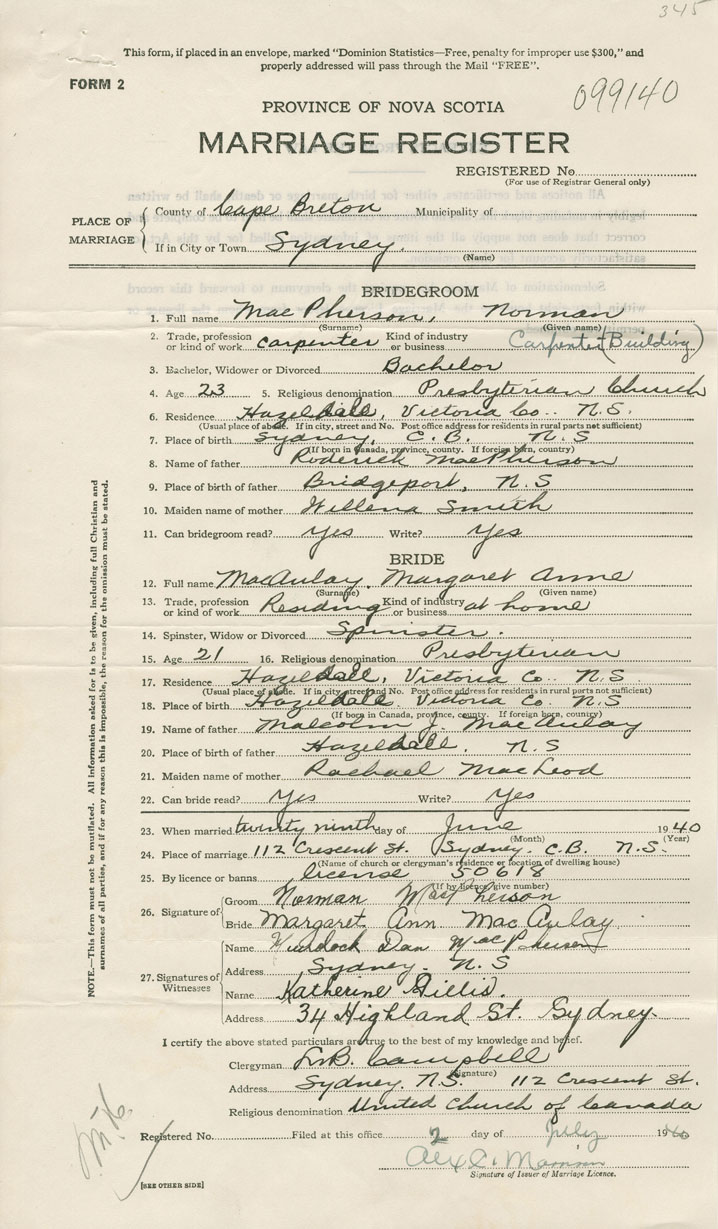 345
This form, if placed in an envelope, marked "Dominion Statistics—Free, penalty for improper use $300," and
properly addressed will pass through the Mail "FREE".
FORM 2
099140
PROVINCE OF NOVA SCOTIA
MARRIAGE REGISTER
REGISTERED No.
(For use of Registrar General only)
PLACE OF MARRIAGE
County of Cape Breton Municipality of
If in City or Town Sydney.
(Name)
BRIDEGROOM
1. Full name MacPherson, Norman
(Surname) (Given name)
2. Trade, profession or kind of work carpenter Kind of industry or business Carpenter (Building)
3. Bachelor, Widower or Divorced Bachelor
4. Age 23 5. Religious denomination Presbyterian Church
6. Residence Hazeldale, Victoria Co.. N.S.
(Usual place of abode. If in city, street and No. Post office address for residents in rural parts not sufficient)
7. Place of birth Sydney, C.B. N.S
(If born in Canada, province, county. If foreign born, country)
8. Name of father Roderick MacPherson
9. Place of birth of father Bridgeport, N.S
10. Maiden name of mother Willena Smith
11. Can bridegroom read? Yes Write? Yes
BRIDE
12. Full name MacAulay, Margaret Anne
(Surname) (Given name)
13. Trade, profession or kind of work Residing Kind of industry or business at home
14. Spinster, Widow or Divorced Spinster.
15. Age 21 16. Religious denomination Presbyterian
17. Residence Hazeldale, Victoria Co.. N.S
(Usual place of abode. If in city, street and No. Post office address for residents in rural parts not sufficient)
18. Place of birth Hazeldale. Victoria Co. N.S
(If born in Canada, province, county. If foreign born, country)
19. Name of father Malcolm J. MacAulay
20. Place of birth of father Hazeldale. N.S
21. Maiden name of mother Rachael MacLeod
22. Can bride read? Yes Write? Yes
23. When married twenty ninth day of June 1940
(Month) (Year)
24. Place of marriage 112 Crescent St. Sydney. C.B. N.S.
(Name of church or clergyman's residence or location of dwelling house)
25. By licence or banns license 50618
(If by licence, give number)
26. Signature of
Groom Norman MacPherson
Bride Margaret Ann MacAulay
27. Signatures of Witnesses
Name Murdock Dan MacPherson
Address Sydney. N.S
Name Katherine Gillis.
Address 34 Highland St. Sydney.
I certify the above stated particulars are true to the best of my knowledge and belief.
Clergyman Campbell
(Signature)
Address Sydney. N.S. 112 Crescent St.
Religious denomination United Church of Canada
Registered No. Filed at this office 2 day of July 1940
Signature of Issuer of Marriage Licence.
[SEE OTHER SIDE]
NOTE.—This form must not be mutilated. All information asked for is to be given, including full Christian and
surnames of all parties, and if for any reason this is impossible, the reason for the omission must be stated.